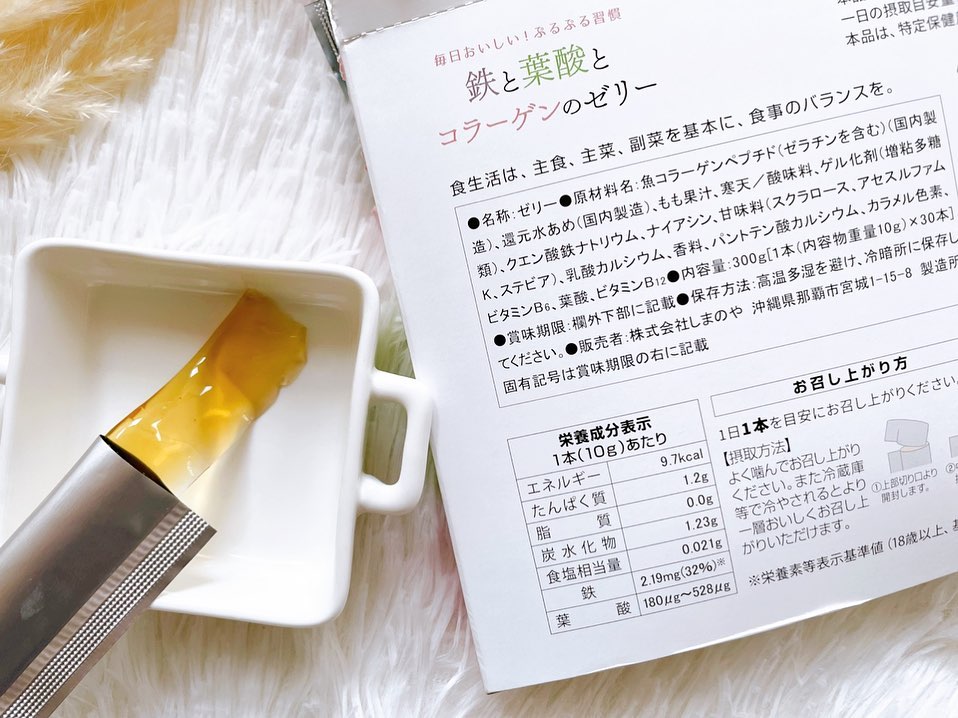 毎日おいしい!ぷるぷる習慣
鉄と葉酸と
コラーゲンのゼリー
一日の摂取目安量
本品は、特定保健
食生活は、主食、主菜、副菜を基本に、食事のバランスを。
●名称:ゼリー●原材料名:魚コラーゲンペプチド(ゼラチンを含む)(国内製
造)、還元水あめ(国内製造)、もも果汁、寒天/酸味料、ゲル化剤(増粘多糖
類)、クエン酸鉄ナトリウム、ナイアシン、甘味料(スクラロース、アセスルファム
K、ステビア)、乳酸カルシウム、香料、パントテン酸カルシウム、カラメル色素、
ビタミンB6、葉酸、ビタミンB12●内容量:300g[1本(内容物重量10g)×30本]
●賞味期限:欄外下部に記載●保存方法:高温多湿を避け、冷暗所に保存し
てください。●販売者:株式会社しまのや 沖縄県那覇市宮城1-15-8 製造所
固有記号は賞味期限の右に記載
栄養成分表示
1本(10g)あたり
エネルギー 9.7kcal
たんぱく質 1.2g
脂質 0.0g
炭水化物 1.23g
食塩相当量 0.021g
鉄 2.19mg(32%)※
葉酸 180μg〜528μg
お召し上がり方
1日1本を目安にお召し上がりください。
【摂取方法】
よく噛んでお召し上がり
ください。また冷蔵庫
等で冷やされるとより
一層おいしくお召し上
がりいただけます。
①上部切り口より
開封します。
②
※栄養素等表示基準値(18歳以上、基